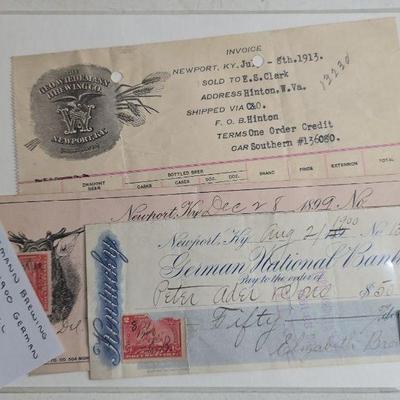 INVOICE
NEWPORT, KY. July 8th.1913.
SOLD TO E.S.Clark
ADDRESS Hinton, W.Va.
SHIPPED VIA C&O.
F. O. B. Hinton
TERMS One Order Credit
CAR Southern #136050.
13230
GEO. WIEDEMANN
BREWING CO.
NEWPORT, KY.
BOTTLED BEER
DRAUGHT BEER CASKS CASES DOZ. CASKS CASES DOZ. PRICE EXTENSION TOTAL
Newport, Ky. Dec 28 1899 No.
Newport, Ky. Aug 2 1900 No.
German National Bank
Pay to the order of
Peter Ader $50
Fifty
Elizabeth
Kentucky
MANN BREWING
1900 GERMAN